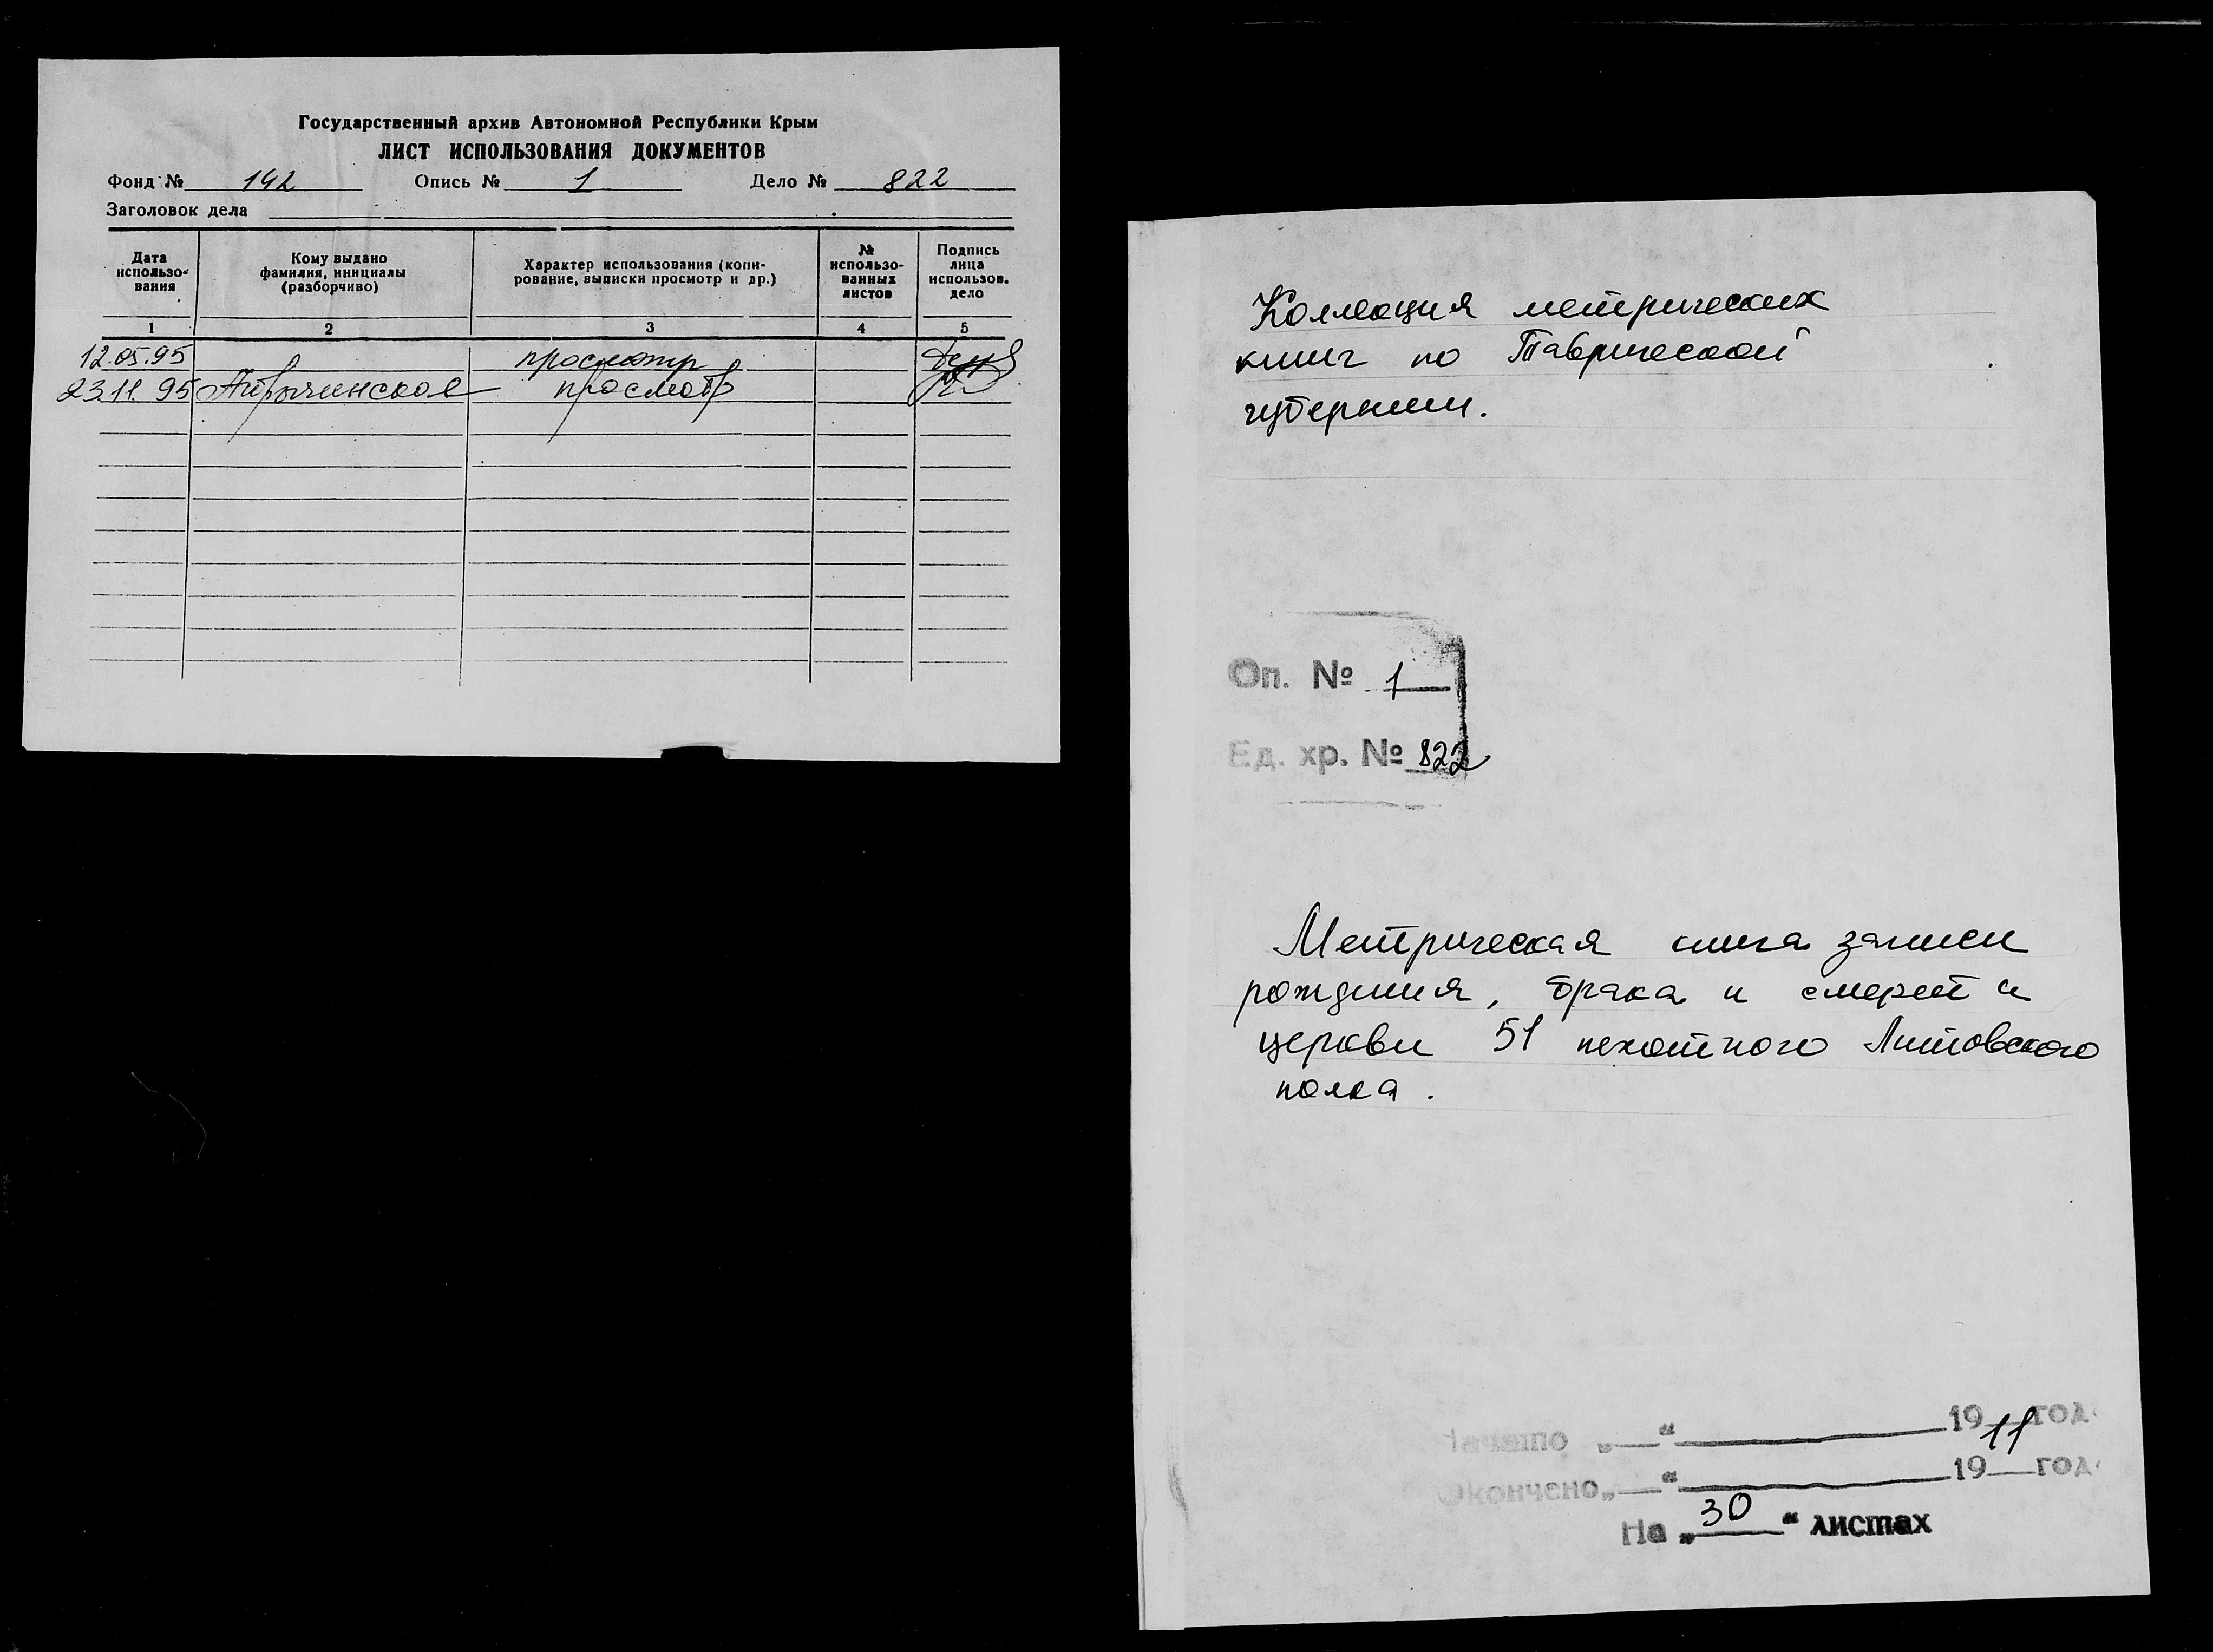 Государственный архив Автономной Республики Крым
ЛИСТ ИСПОЛЬЗОВАНИЯ ДОКУМЕНТОВ
Фонд № 142 Опись № 1 Дело № 822
Заголовок дела
Дата использо-вания
Кому выдано фамилия, инициалы (разборчиво)
Характер использования (копи-рование, выписки просмотр и др.)
№ использо-ванных листов
Подпись лица использов. дело
1 2 3 4 5
12.05.95 просмотр
23.11.95 просмотр
Коллекция метрических
книг по Таврической
губернии.
Оп. № 1
Ед. хр. № 822
Метрическая книга записи
рождения, брака и смерти
церкви 51 пехотного Литовского
полка.
Начато „ “ 1911 год
Окончено „ “ 19 год
На „30“ листах